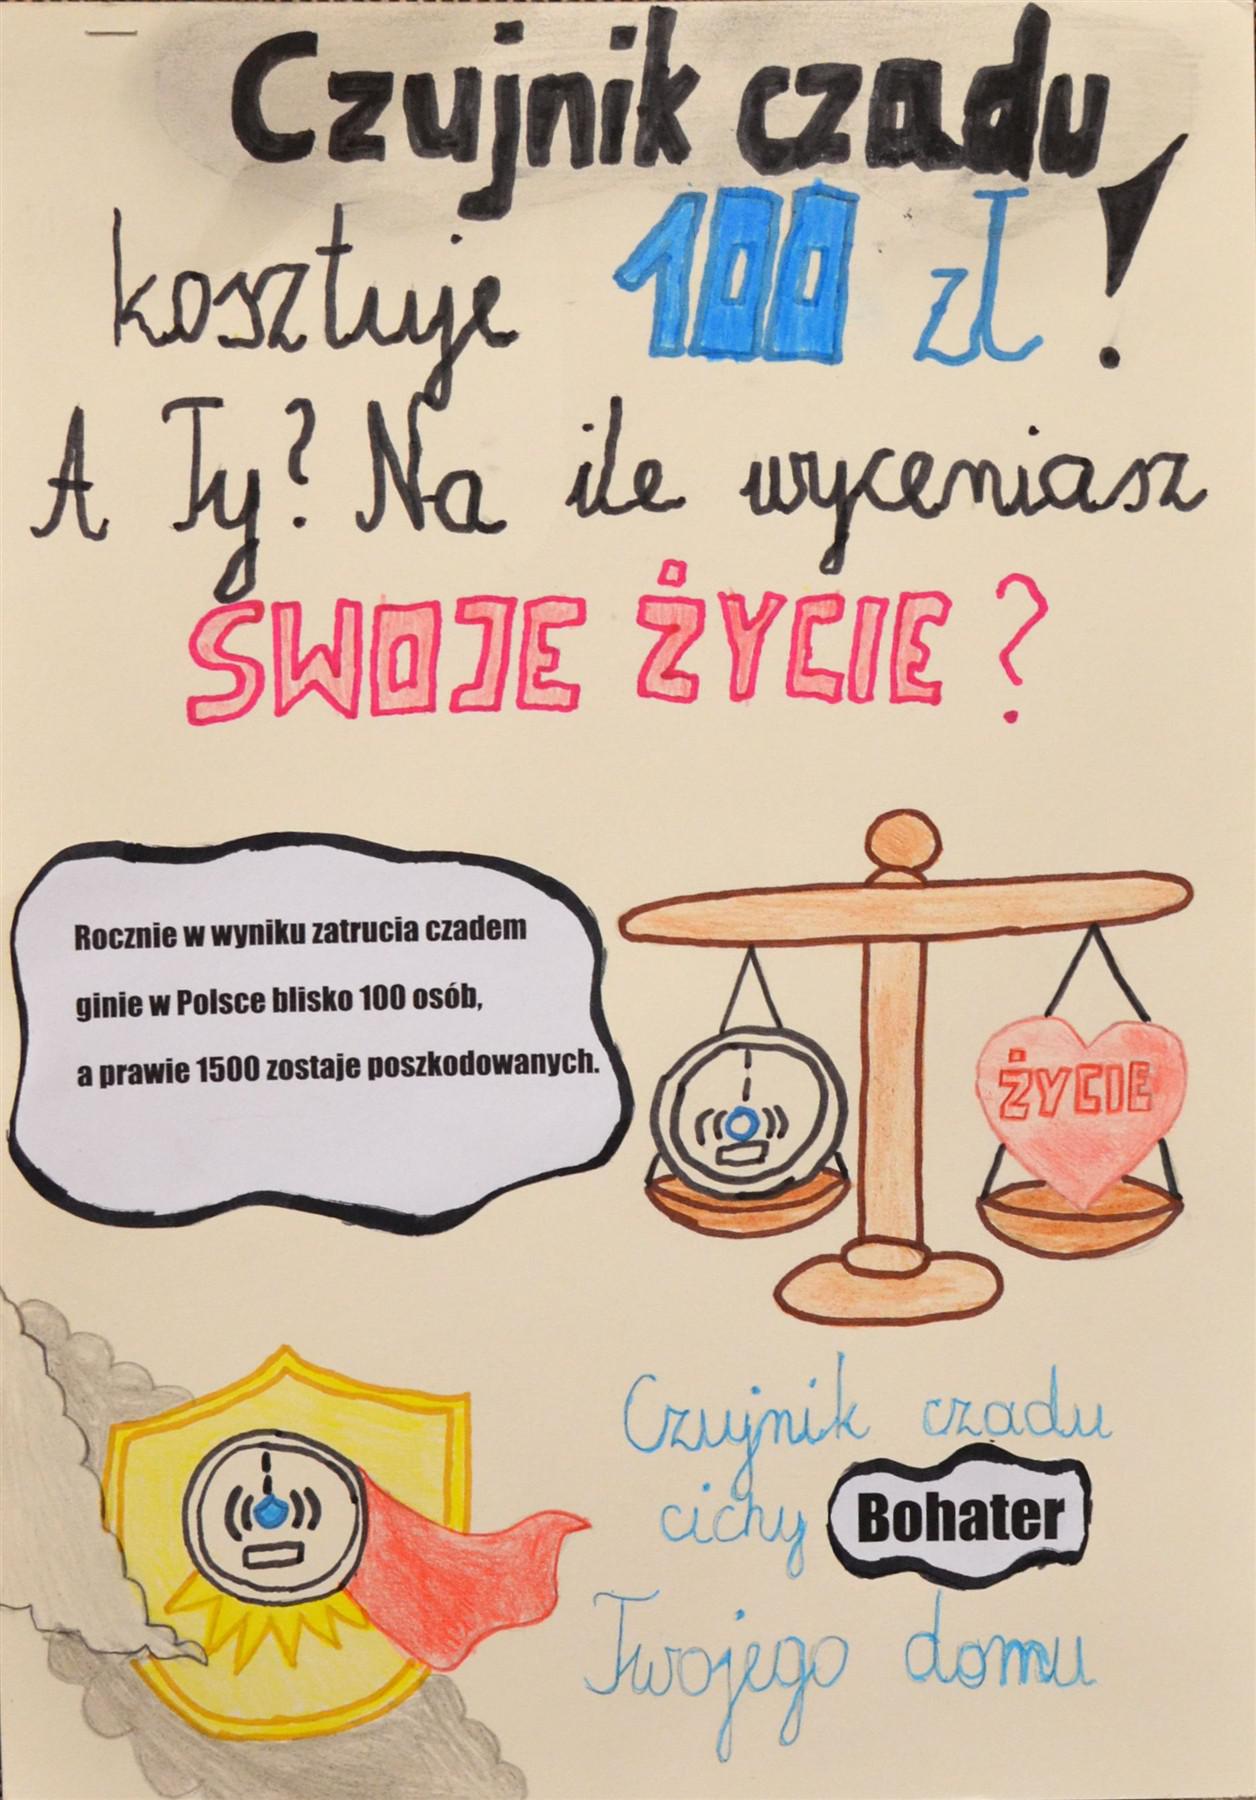 Czujnik czadu
kosztuje 100 zł !
A Ty? Na ile wyceniasz
SWOJE ŻYCIE ?
Rocznie w wyniku zatrucia czadem
ginie w Polsce blisko 100 osób,
a prawie 1500 zostaje poszkodowanych.
ŻYCIE
Czujnik czadu
cichy Bohater
Twojego domu